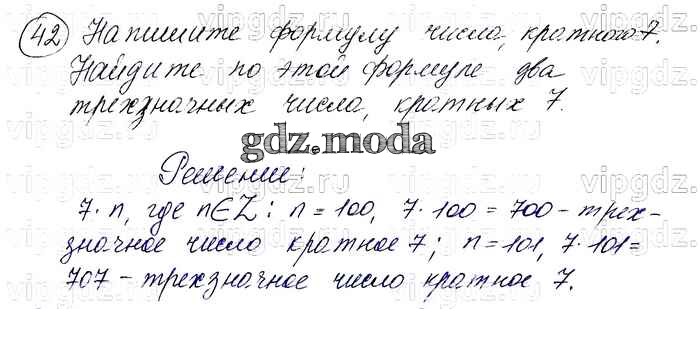 42 Напишите формулу числа, кратного 7.
Найдите по этой формуле два
трехзначных числа, кратных 7.
gdz.moda
Решение:
7·n, где n∈Z: n=100, 7·100=700 – трех-
значное число кратное 7; n=101, 7·101=
707 – трехзначное число кратное 7.